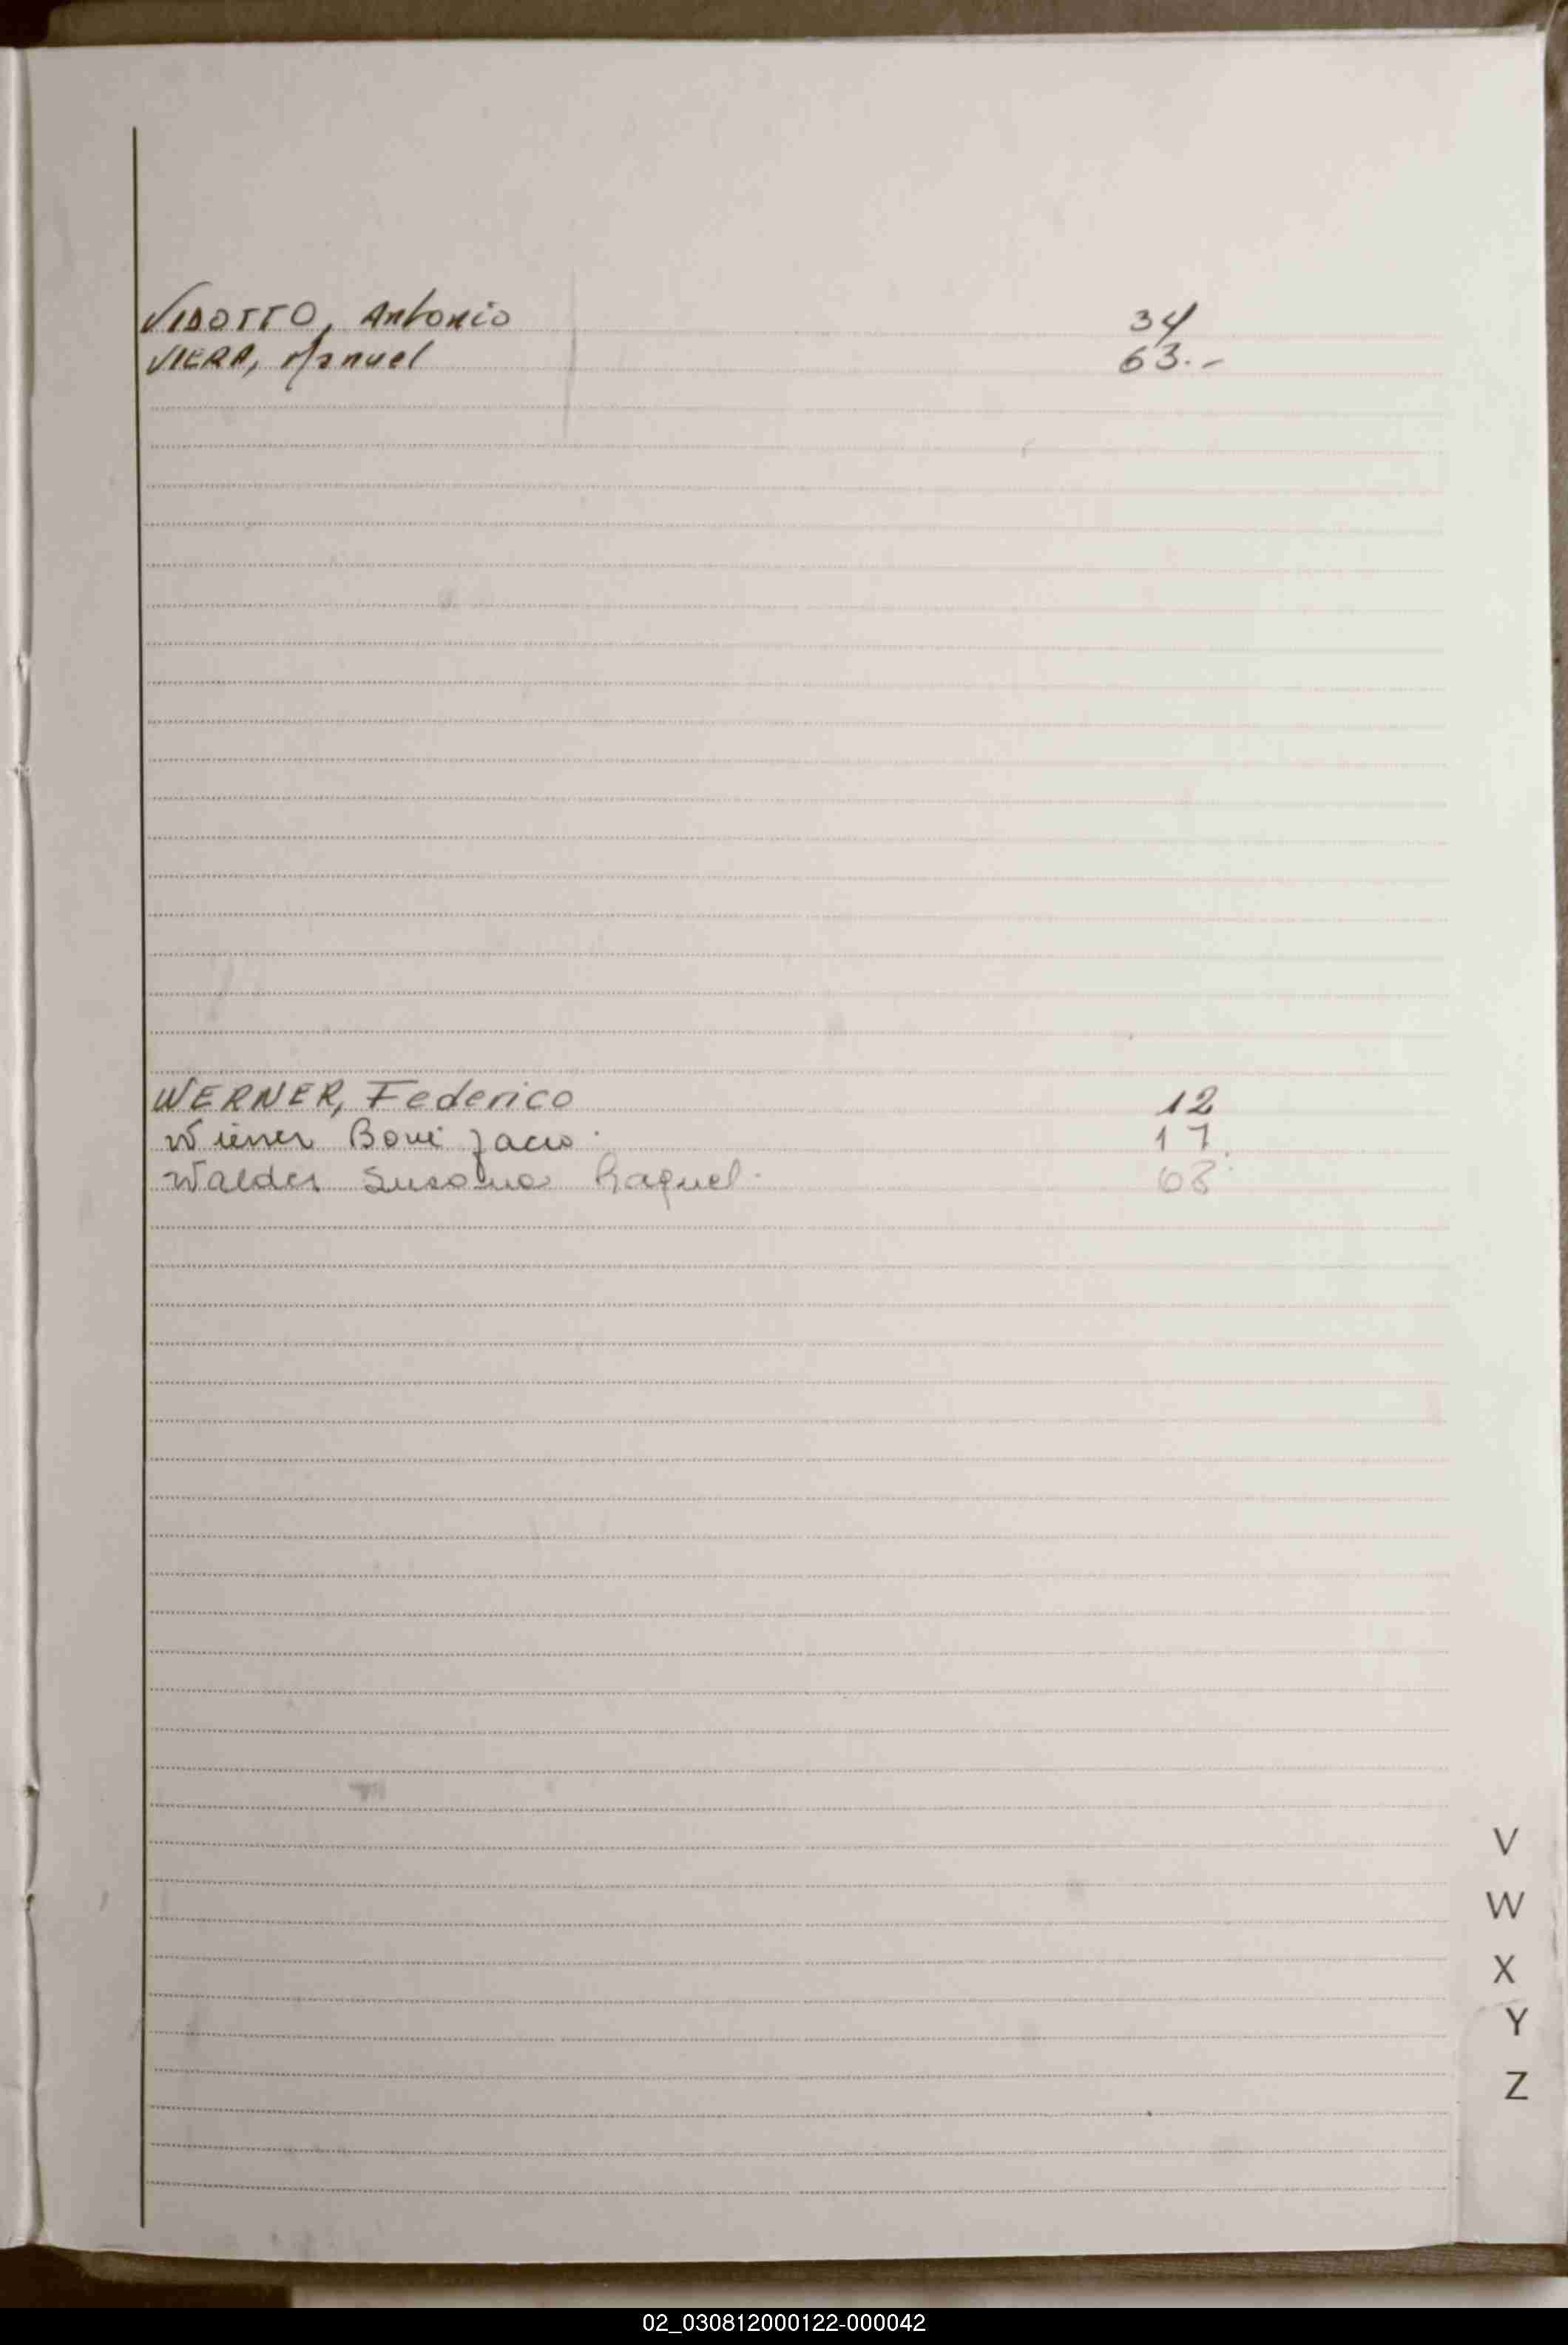 VIDOTTO, Antonio 34
VIERA, Manuel 63.-
WERNER, Federico 12
Wiener Boni facio. 17.
Walder Susana Raquel. 68.
V
W
X
Y
Z
02_030812000122-000042